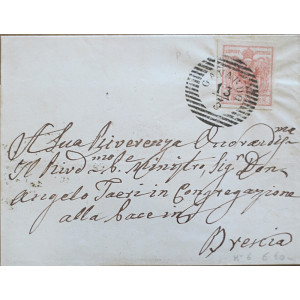 GAVARDO
13
A Sua Riverenza Onorandis.me
Il Rivd.mo Ministro, Sig.r Don
Angelo Taeri in Congregazione
alla Pace in
Brescia